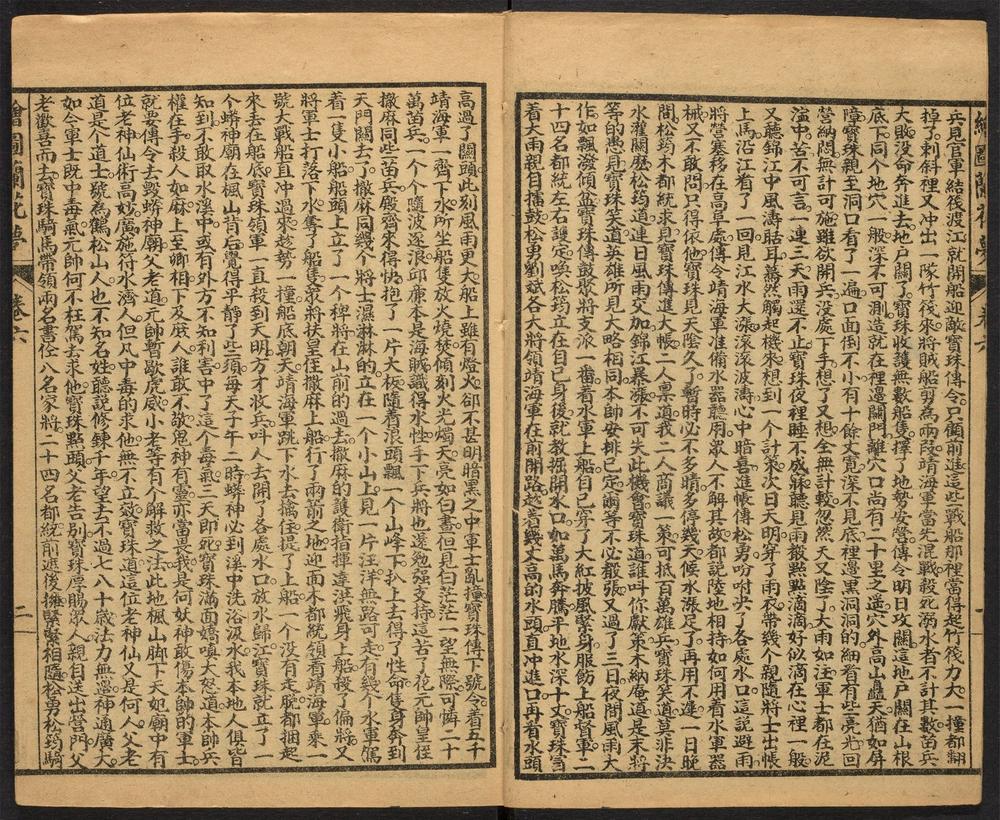 兵見官軍結筏渡江就開船迎敵寶珠傳令只顧前進這些戰船那裡當得起竹筏力大一撞都翻
掉了刺斜裡又冲出一隊竹筏來將賊船剪為兩段靖海軍當先混戰殺死溺水者不計其數苗兵
大敗没命奔進去地戶關了寶珠收護無數船隻擇了地勢安營傳令明日攻關這地戶關在山根
底下同個地穴一般深不可測造就在裡邊關門離穴口尚有二十里之遥穴外高山矗天猶如屏
障寶珠親至洞口看了一遍口面倒不小有十餘丈寛深不見底裡邊黑洞洞的細看有些亮光回
營納悶無計可施雖欲開兵没處下手想了又想全無計較忽然天又陰了大雨如注軍士都在泥
濘中苦不可言一連三天雨還不止寶珠夜裡睡不成寐聽見雨聲點點滴滴好似滴在心裡一般
又聽錦江中風濤聒耳驀然觸起機來想到一個計策次日天明穿了雨衣帶幾个親隨將士出帳
上馬沿江看了一回見江水大漲滾滾波濤心中暗喜進帳傳松勇吩咐尖了各處水口這說避雨
將營寨移在高阜處傳令靖海軍准備水器聽用眾人不解其故都說陸地相持如何用着水軍器
械又不敢問只得依他寶珠見天陰久了暫時必不多晴多停幾天候水漲足了再用不遲一日晚
間松筠木都統求見寶珠傳進大帳二人禀道我二人商議一策可抵百萬雄兵寶珠笑道莫非決
水灌關麽松筠道連日風雨交加錦江暴漲不可失此機會寶珠道誰叫你獻策木納庵道是末將
等的愚見寶珠笑道英雄所見大略相同本帥安排已定爾等不必聲張又過了三日夜間風雨大
作如飄潑傾盆寶珠傳鼓聚將支派一番着水軍上船自已穿了大紅披風緊身服飭上船資軍二
十四名都統左右護定喚松筠立在自己身後就教掘開水口如萬馬奔騰平地水深十丈寶珠冒
着大雨親自擂鼓松勇劉斌各大將領靖海軍在前開路趁着幾丈高的水頭直冲進口再看水頭
高過了關頭此刻風雨更大船上雖有燈火卻不甚明暗黑之中軍士亂撞寶珠傳下號令着五千
靖海軍一齊下水所坐船隻放火燒焚傾刻火光燭天亮如白晝但見白茫茫一望無際可憐二十
萬苗兵一个个隨波逐浪邱廉本是海賊識得水性手下兵將也還勉强支持這苦了花元帥皇侄
撒麻同些苗兵殿齊來得快抱了一片大板隨着浪頭飄一个山峰下扒上去得了性命隻身奔到
天門關去了撒麻同幾个將士濕淋淋的立在一个小山上見一片汪洋無路可走有幾个水軍駕
着一隻小船船頭上立了一个稗將在山前的過去撒麻的護衛指揮達洪飛身上船殺了偏將又
將軍士打落下水奪了船隻眾將扶皇侄撒麻上船行了兩箭之地迎面木都統領着靖海軍乘一
號大戰船直冲過來趁勢一撞船底朝天靖海軍跳下水去擒住提了上船一个没有走脫都捆起
來丢在船底寶珠領軍一直殺到天明方才收兵叫人去開了各處水口放水歸江寶珠就立了一
个蟒神廟在楓山背后覺得平静了些須每天子午二時蟒神必到溪中洗浴汲水我本地人俱皆
知到不敢敢取水溪中或有外方不知利害中了這个毒氣三天即死寶珠滿面嬌嗔大怒道本帥兵
權在手殺人如麻上至卿相下及庶人誰敢不敬鬼神有靈亦當畏我是何妖神敢傷本帥的軍士
就要傳令去毁蟒神廟父老道元帥暫歇虎威小老等有个解救之法此地楓山脚下天妃廟中有
位老神仙術高妙廣施符水濟人但凡中毒的求他無不立效寶珠道這位老神仙又是何人父老
道是个道士號為鶴松山人也不知名姓聽說修鍊千年望去不過七八十歲法力無邊神通廣大
如今軍士既中毒氣元帥何不枉駕去求他寶珠點頭父老告別寶珠厚賜眾人親自送出營門父
老歡喜而去寶珠騎馬帶領兩名書仕八名家將二十四名都統前遮後擁緊緊相隨松勇松筠騎
繪圖蘭花夢
卷六
二